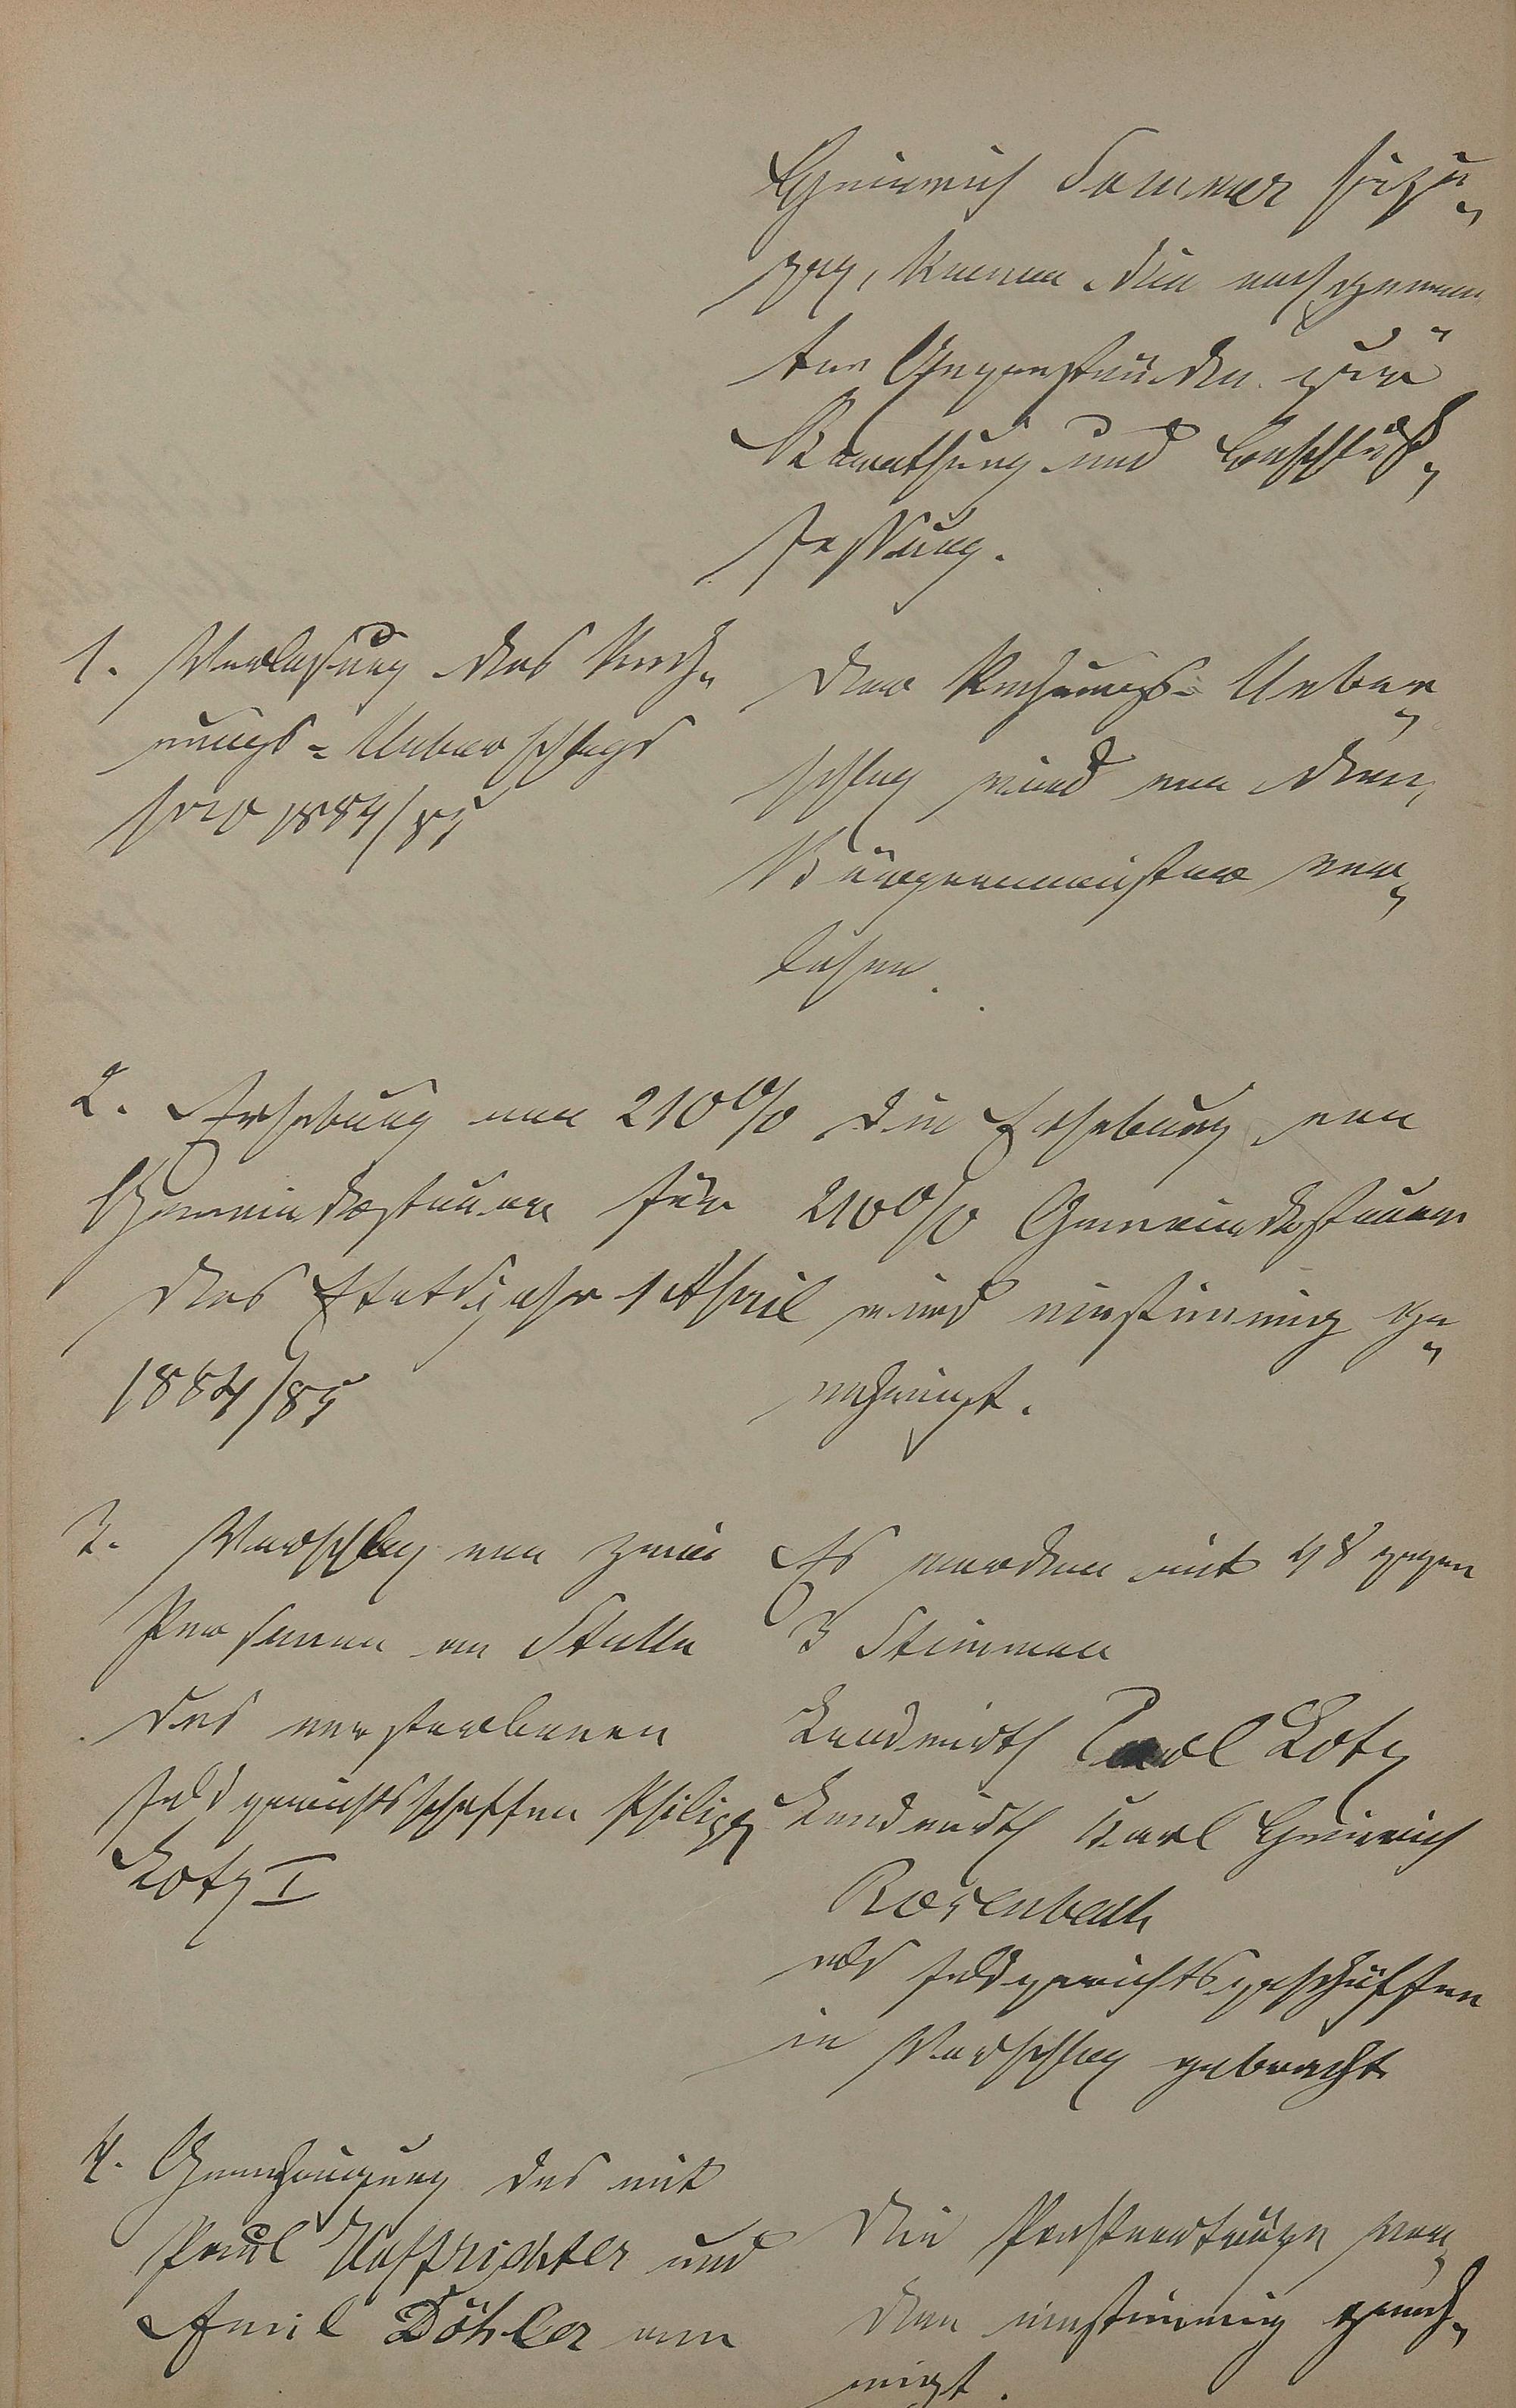 Heinrich Sommer hinzu„
zog, kamen die nachgenann
ten Gegenstände zur
Berathung und Beschluß„
fassung.
1. Verlesung des Rech„
nungs-Ueberschlags
pro 1884/85
Der Rechnungs-Ueber„
schlag wird von dem
Bürgermeister ver„
lesen.
2. Erhebung von 210%
Gemeindesteuer für
das Etatsjahr 1 April
1884/85
Die Erhebung von
210% Gemeindesteuer
wird einstimmig ge„
nehmigt.
3. Vorschlag von zwei
Personen an Stelle
des verstorbenen
Feldgerichtsschöffen Philipp
Lotz I
Es werden mit 48 gegen
3 Stimmen
Landwirth Carl Lotz
Landwirth Karl Heinrich
Rosenbach
als Feldgerichtsschöffen
in Vorschlag gebracht
4. Genehmigung des mit
Paul Hofrichter und
Emil Döhler am
Die Pachtverträge wer„
den einstimmig geneh„
migt.